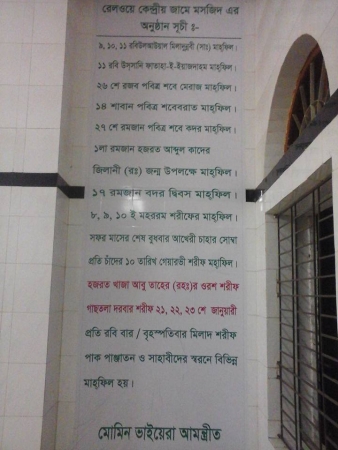 রেলওয়ে কেন্দ্রীয় জামে মসজিদ এর
অনুষ্ঠান সূচী ঃ-
৯, ১০, ১১ রবিউলআউয়াল মিলাদুন্নবী (সাঃ) মাহ্‌ফিল।
১১ রবি উস্‌সানি ফাতাহা-ই-ইয়াজদাহম মাহ্‌ফিল।
২৬ শে রজব পবিত্র শবে মেরাজ মাহ্‌ফিল।
১৪ শাবান পবিত্র শবেবরাত মাহ্‌ফিল।
২৭ শে রমজান পবিত্র শবে কদর মাহ্‌ফিল।
১লা রমজান হজরত আব্দুল কাদের
জিলানী (রঃ) জন্ম উপলক্ষে মাহ্‌ফিল।
১৭ রমজান বদর দ্বিবস মাহ্‌ফিল।
৮, ৯, ১০ ই মহররম শরীফের মাহ্‌ফিল।
সফর মাসের শেষ বুধবার আখেরী চাহার সোম্বা
প্রতি চাঁদের ১০ তারিখ গেয়ারভী শরীফ মহাফিল।
হজরত খাজা আবু তাহের (রহঃ)র ওরশ শরীফ
গাছতলা দরবার শরীফ ২১, ২২, ২৩ শে জানুয়ারী
প্রতি রবি বার / বৃহস্পতিবার মিলাদ শরীফ
পাক পাঞ্জাতন ও সাহাবীদের স্বরনে বিভিন্ন
মাহ্‌ফিল হয়।
মোমিন ভাইয়েরা আমন্ত্রীত